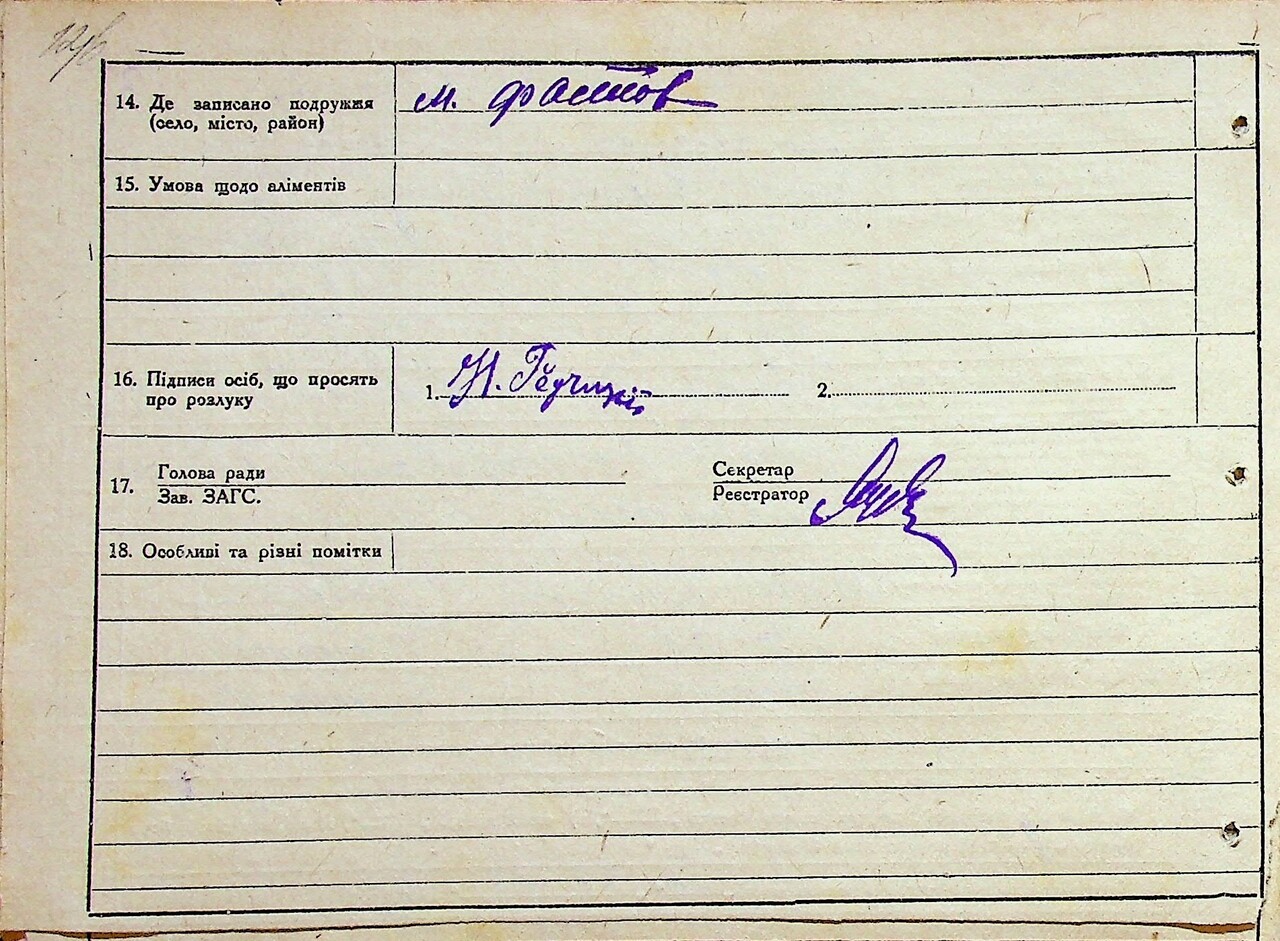 14. Де записано подружжя
(село, місто, район)
м. Фастов
15. Умова щодо аліментів
16. Підписи осіб, що просять
про розлуку
1.
2.
17.
Голова ради
Зав. ЗАГС.
Секретар
Реєстратор
18. Особливі та різні помітки